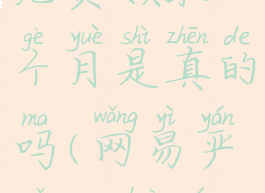 gè yuè shì zhēn de
个月是真的
ma wǎng yì yán
吗(网易严